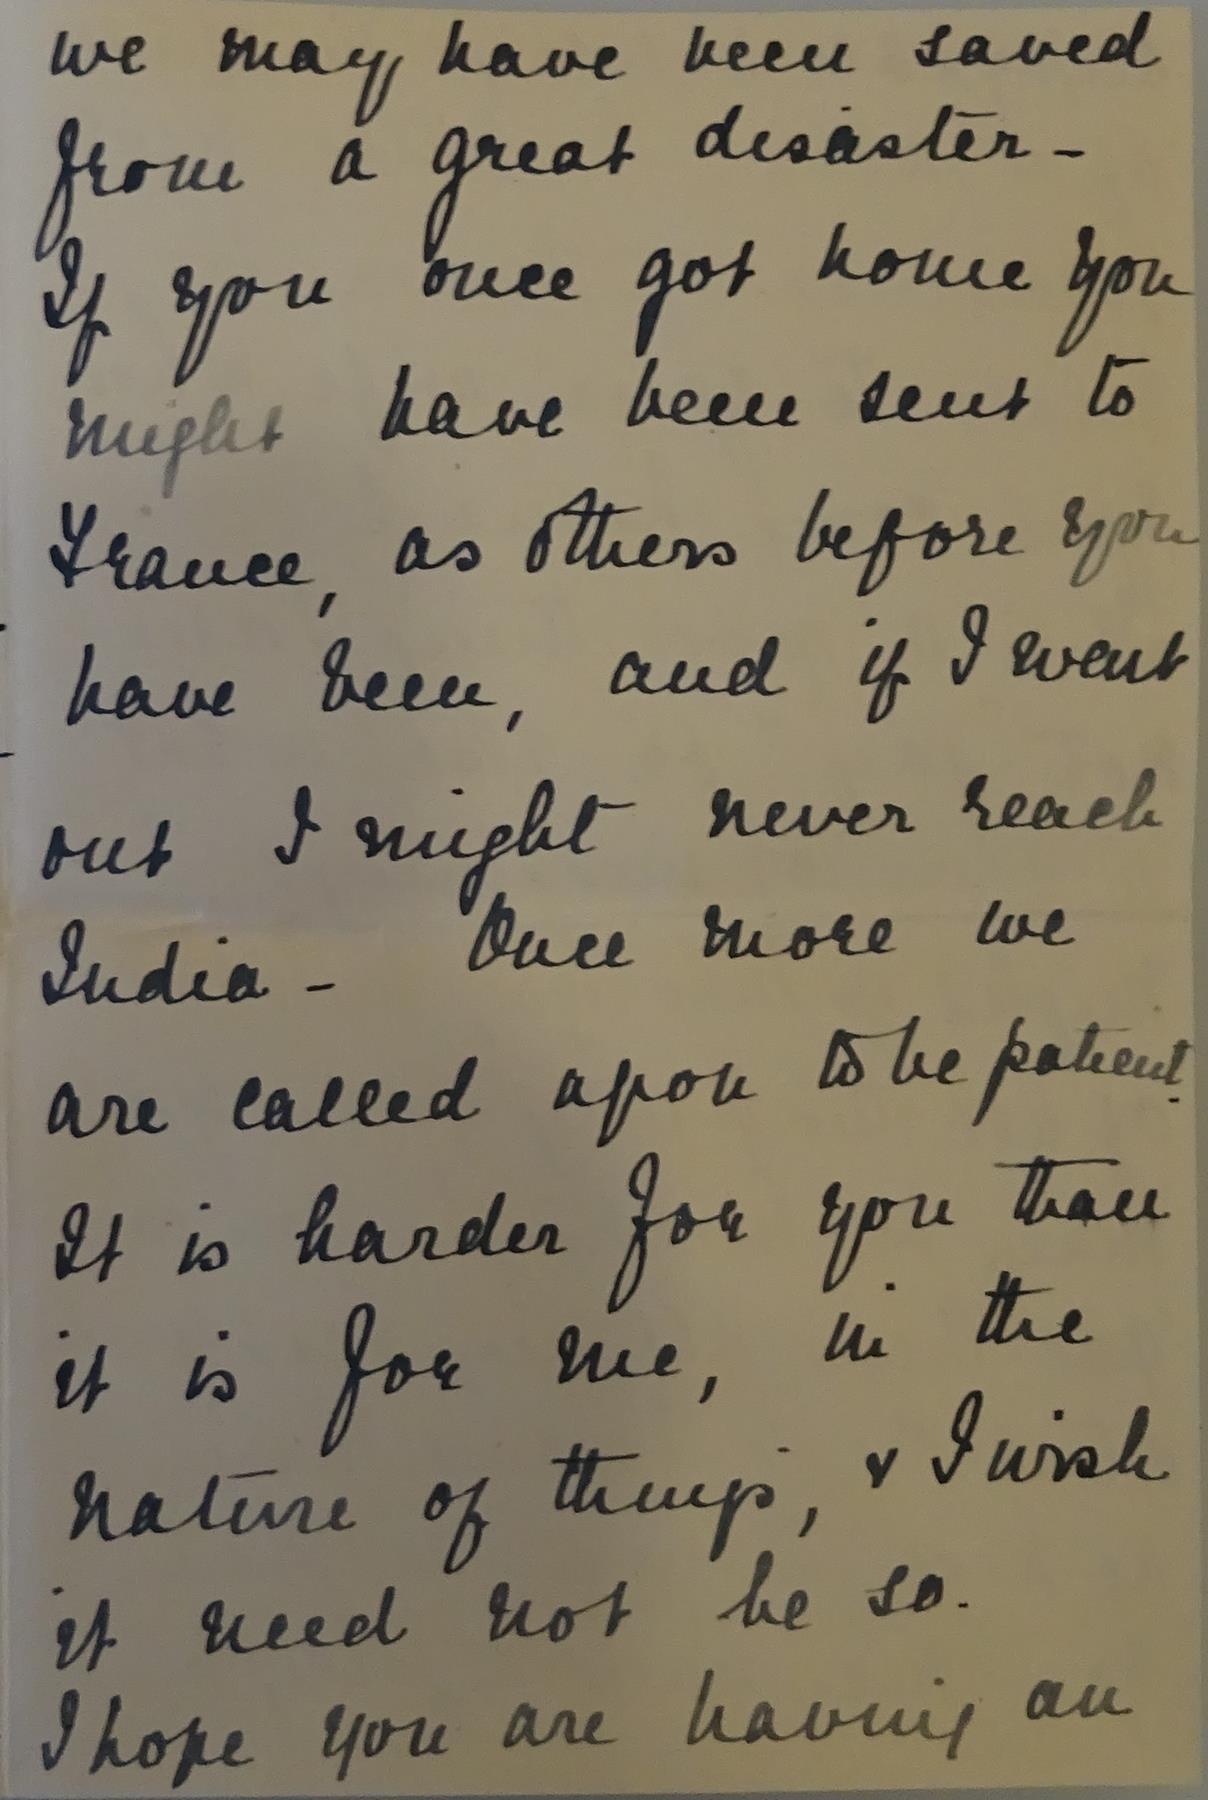 we may have been saved
from a great disaster -
If you once got home you
might have been sent to
France, as others before you
have been, and if I went
out I might never reach
India - Once more we
are called upon to be patient.
It is harder for you than
it is for me, in the
nature of things, & I wish
it need not be so.
I hope you are having an